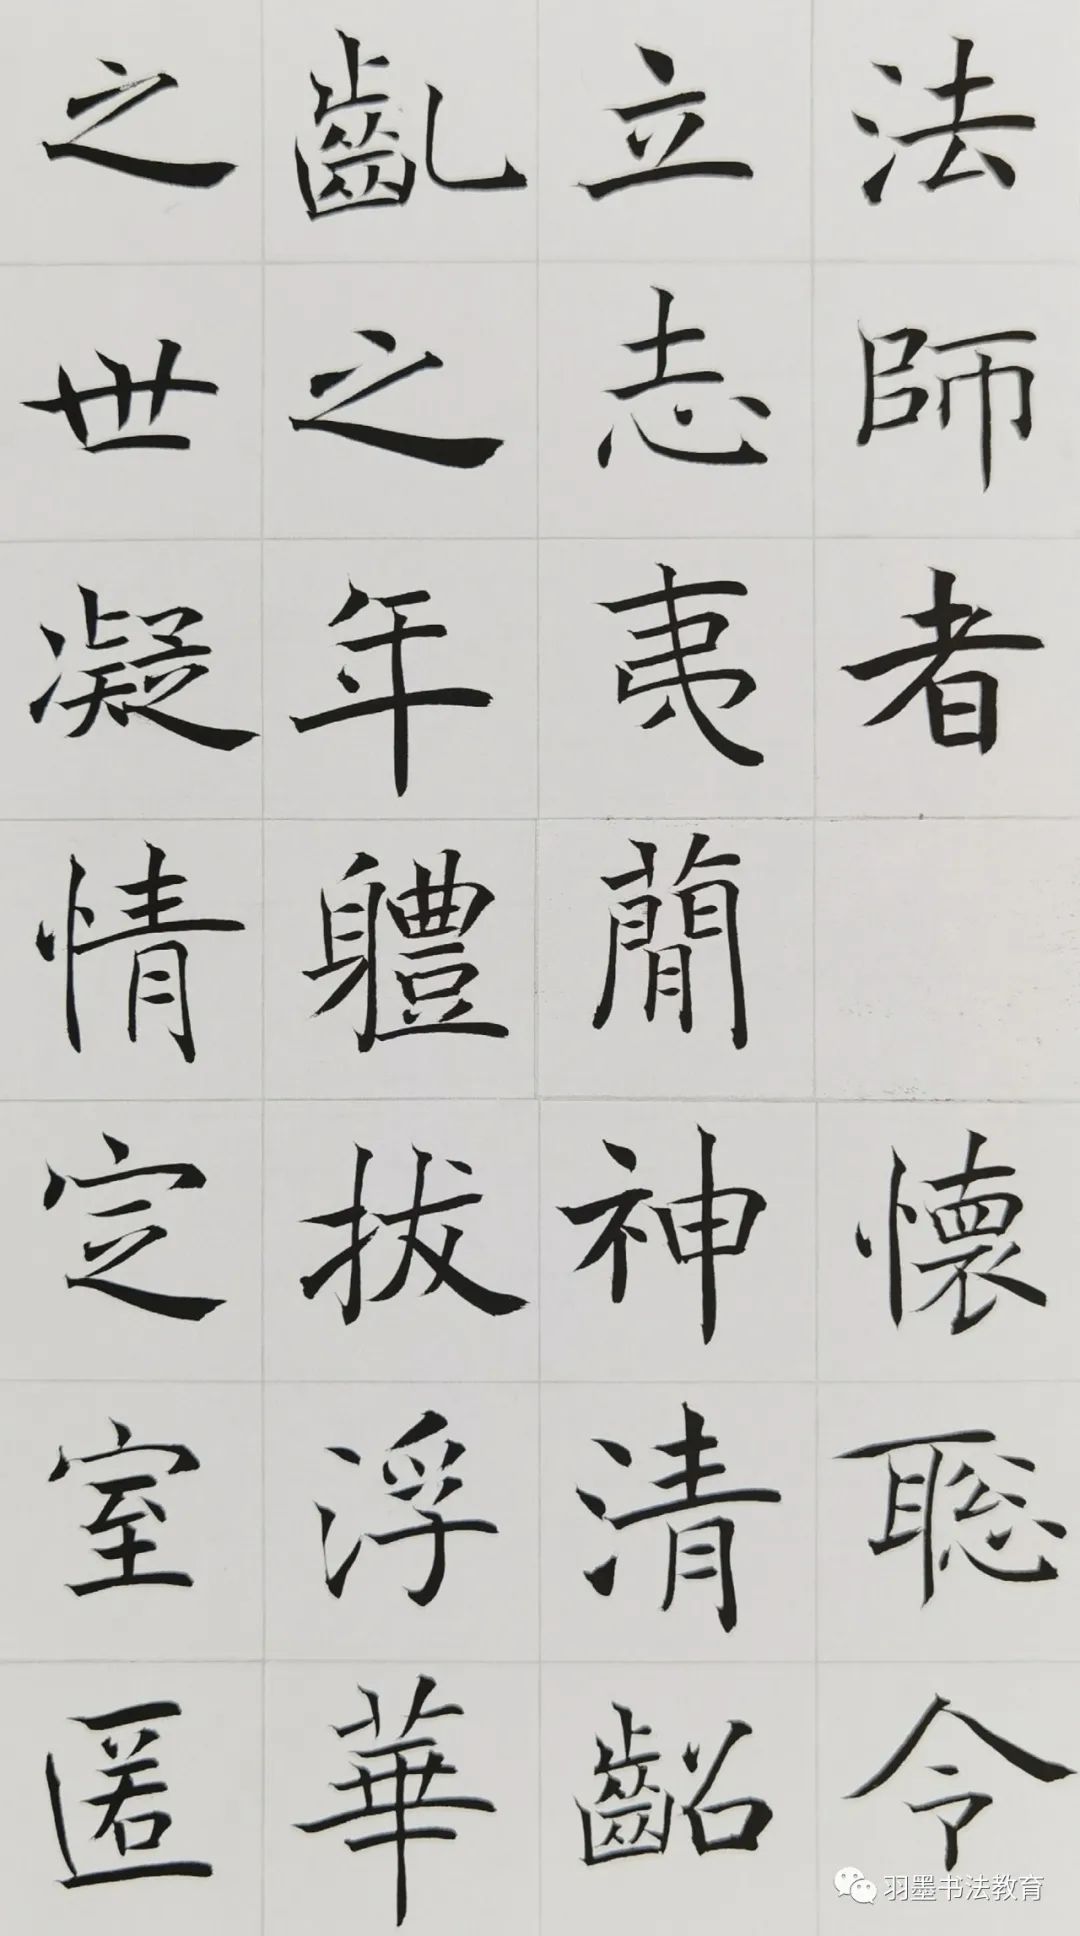 法師者懷聡令
立志夷蕳神清齠
齓之年軆拔浮華
之世凝情定室匿
羽墨书法教育